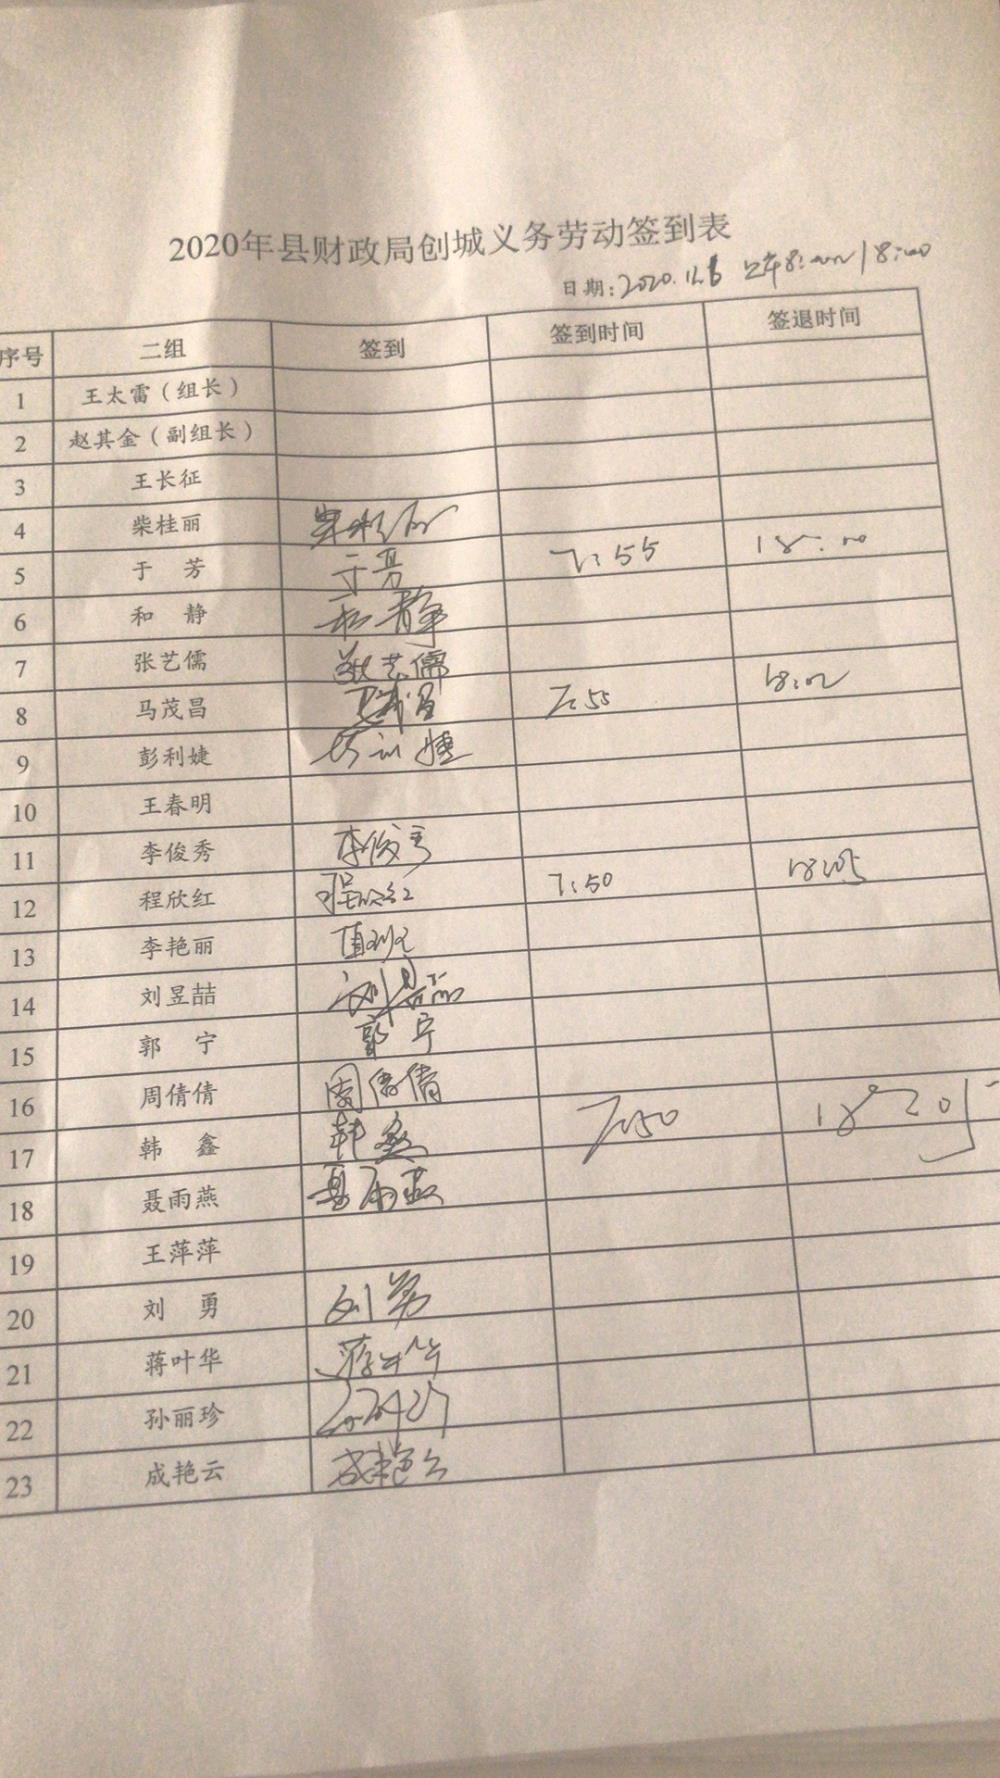 2020年县财政局创城义务劳动签到表
日期: 2020.11.6 上午8:00 18:00
序号 二组 签到 签到时间 签退时间
1 王太雷（组长）
2 赵其金（副组长）
3 王长征
4 柴桂丽
5 于 芳 于芳 7:55 18:00
6 和 静 和静
7 张艺儒 张艺儒
8 马茂昌 马茂昌 7:55 18:00
9 彭利婕 彭利婕
10 王春明
11 李俊秀 李俊秀
12 程欣红 程欣红 7:50 18:05
13 李艳丽 值班
14 刘昱喆 刘昱喆
15 郭 宁 郭宁
16 周倩倩 周倩倩
17 韩 鑫 韩鑫 7:50 18:20
18 聂雨燕 聂雨燕
19 王萍萍
20 刘 勇 刘勇
21 蒋叶华 蒋叶华
22 孙丽珍
23 成艳云 成艳云